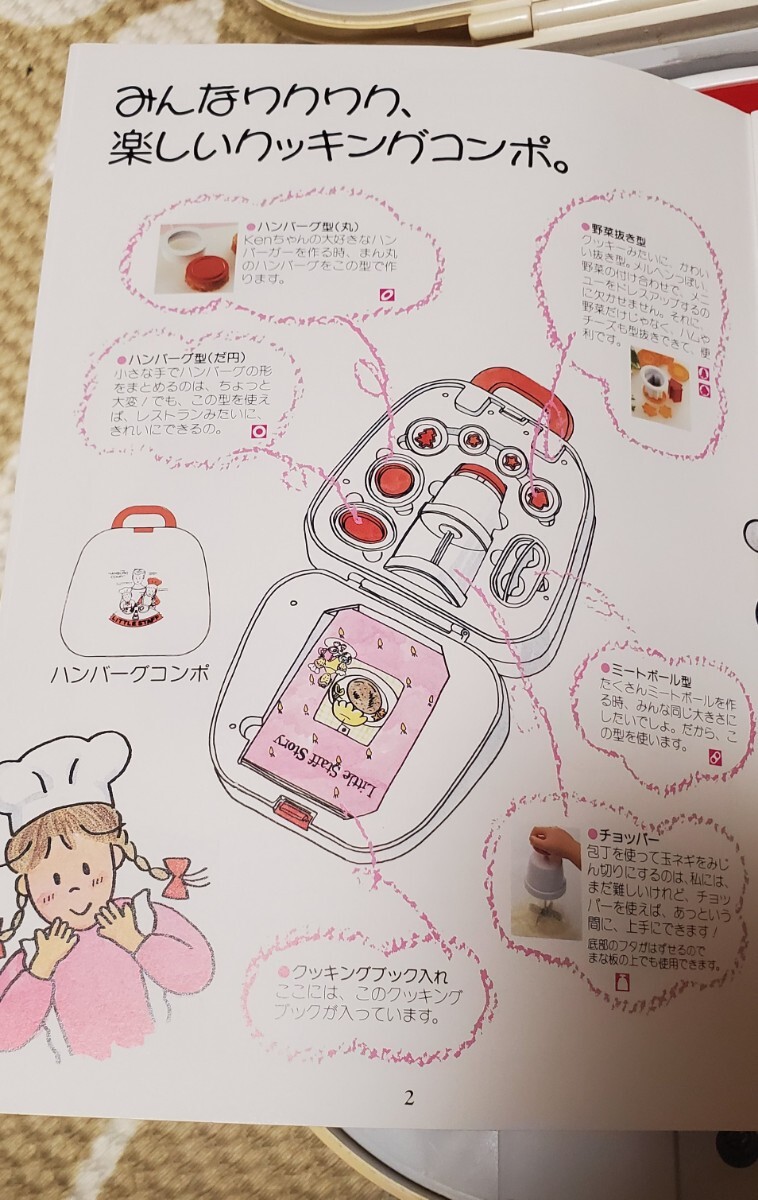 みんなワクワク、
楽しいクッキングコンポ。
●ハンバーグ型(丸)
Kenちゃんの大好きなハン
バーガーを作る時、まん丸
のハンバーグをこの型で作
ります。
●野菜抜き型
クッキーみたいに、かわい
い抜き型。メルヘンっぽい、
野菜の付け合わせで、メニ
ューをドレスアップするの
に欠かせません。それに、
野菜だけじゃなく、ハムや
チーズも型抜きできて、便
利です。
●ハンバーグ型(だ円)
小さな手でハンバーグの形
をまとめるのは、ちょっと
大変!でも、この型を使え
ば、レストランみたいに、
きれいにできるの。
LITTLE STAFF
ハンバーグコンポ
Little Staff Story
●ミートボール型
たくさんミートボールを作
る時、みんな同じ大きさに
したいでしょ。だから、こ
の型を使います。
●チョッパー
包丁を使って玉ネギをみじ
ん切りにするのは、私には、
まだ難しいけれど、チョッ
パーを使えば、あっという
間に、上手にできます!
底部のフタがはずせるので
まな板の上でも使用できます。
●クッキングブック入れ
ここには、このクッキング
ブックが入っています。
2